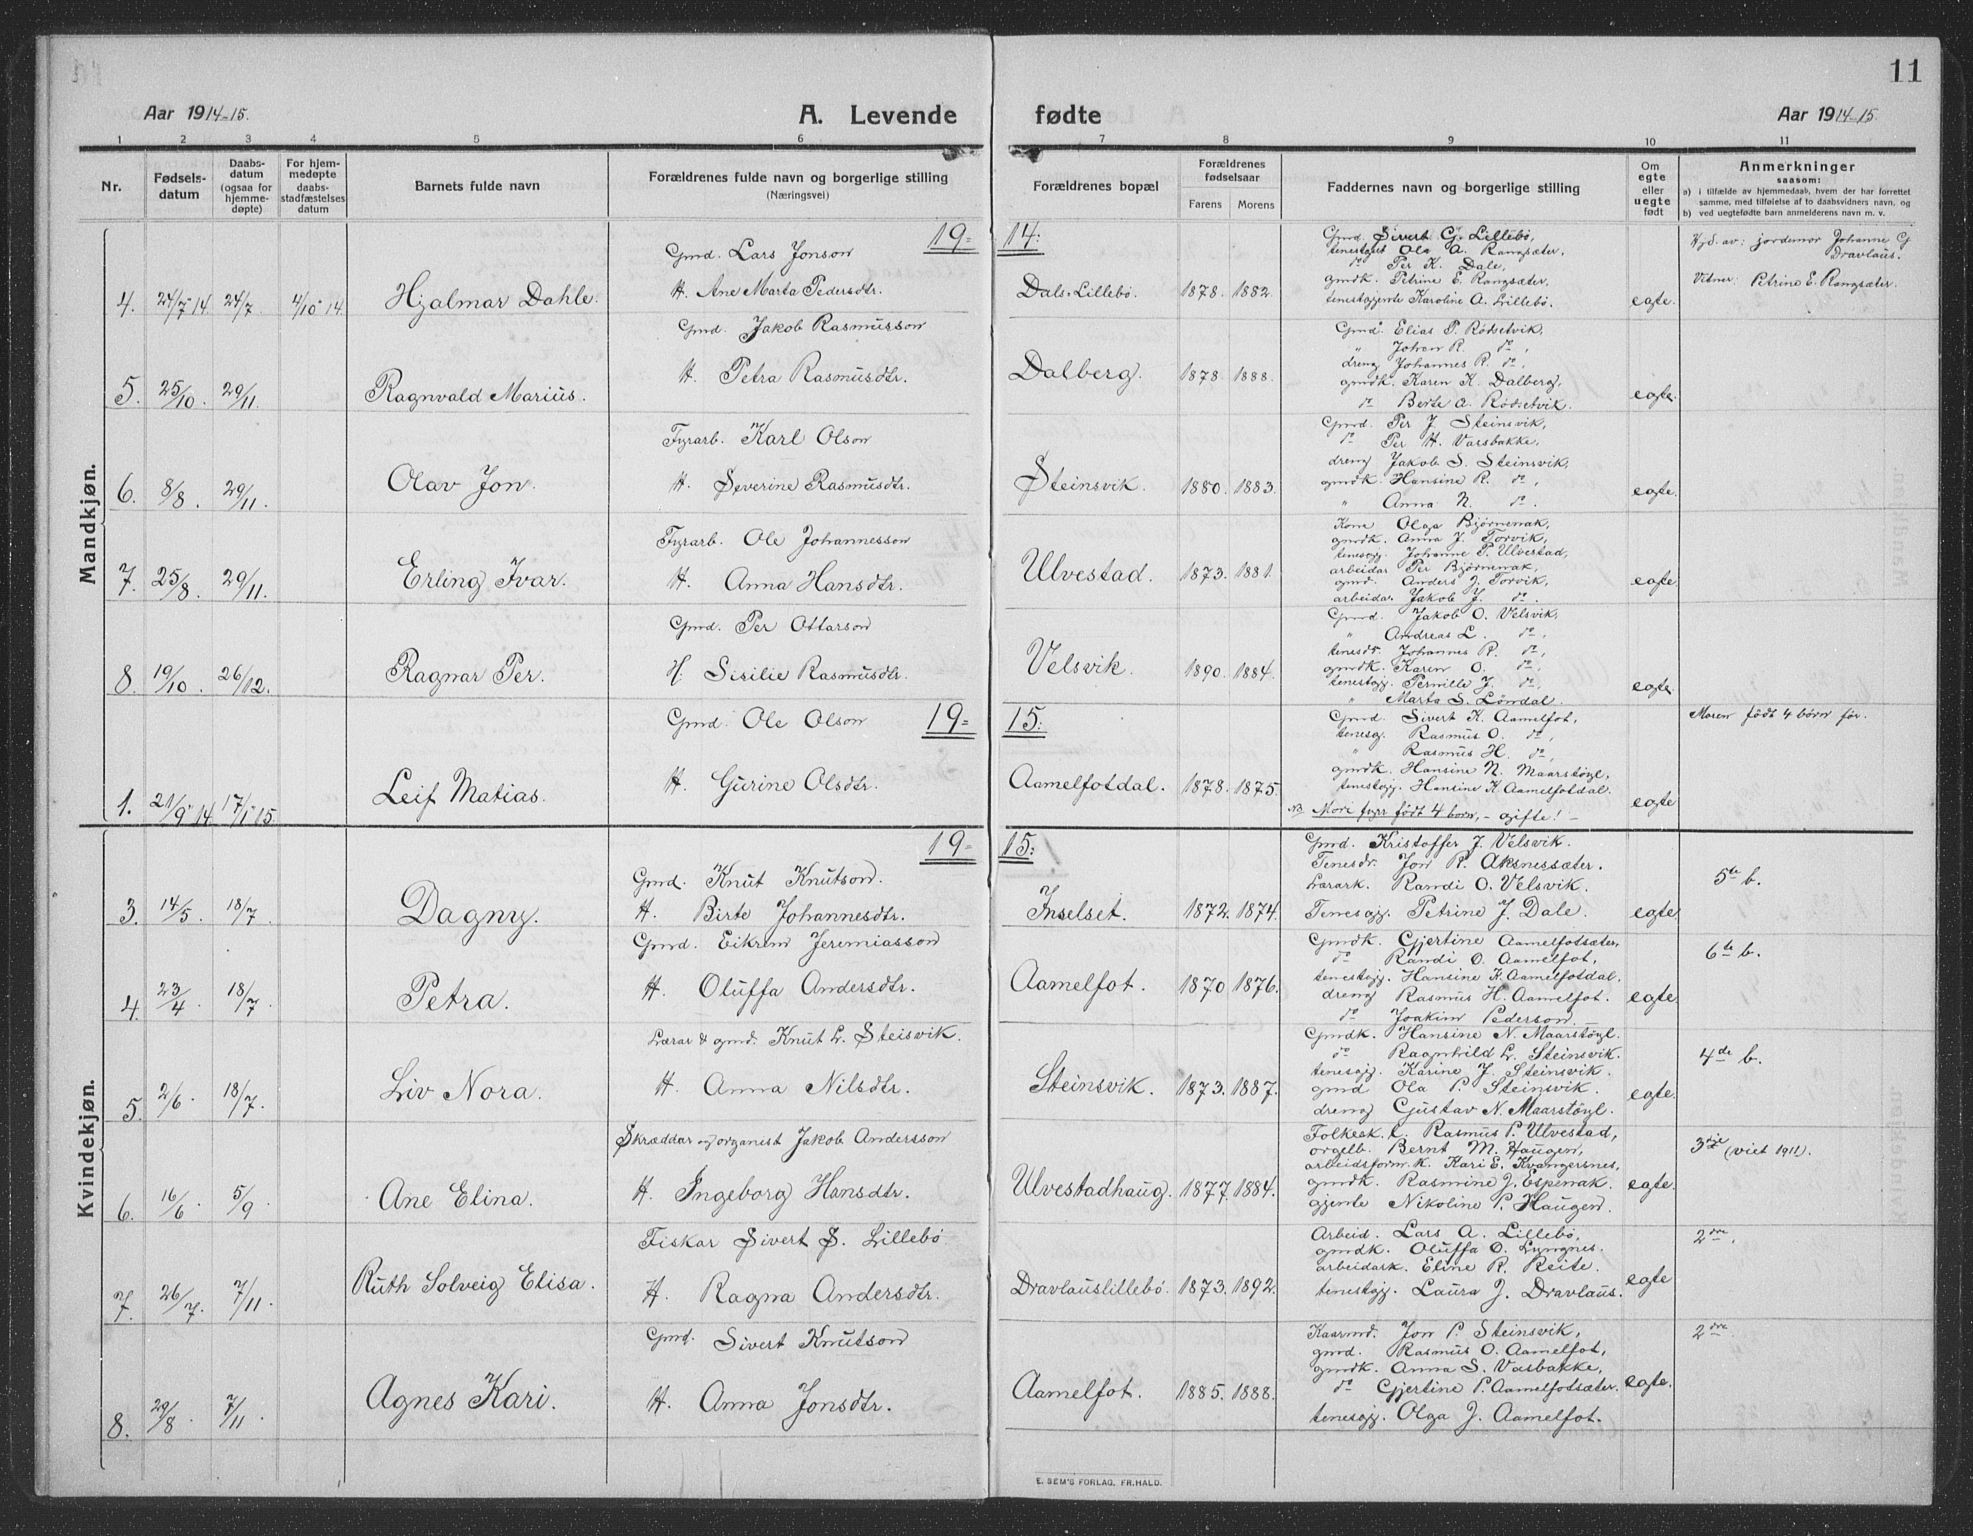 11
Aar 1914-15. A. Levende fødte Aar 1914-15
1 2 3 4 5 6 7 8 9 10 11
Nr.
Fødselsdatum
Daabsdatum (ogsaa for hjemmedøpte)
For hjemmedøpte daabsstadfæstelses datum
Barnets fulde navn
Forældrenes fulde navn og borgerlige stilling
(Næringsvei)
Forældrenes bopæl
Forældrenes fødselsaar
Farens Morens
Faddernes navn og borgerlige stilling
Om egte eller uegte født
Anmerkninger
saasom:
a) i tilfælde av hjemmedaab, hvem der har forrettet
samme, med tilføielse af to daabsvidners navn, og
b) ved uegtefødte barn anmelderens navn m. v.
Mandkjøn.
19- 14:
4. 24/7-14 24/7 4/10-14 Hjalmar Dahle.
Gmd. Lars Jonson
H. Ane Marta Pedersdtr.
Dals-Lillebø. 1878. 1882.
Gmd. Sivert G. Lillebø,
tenestgut Ola A. Rangsæter,
do Per K. Dale,
gmdk. Petrine E. Rangsæter,
tenestgjente Karoline A. Lillebø.
egte.
Hjd. av: jordemor Johanne G
Dravlaus.
Vitner: Petrine E. Rangsæter.
5. 25/10. 29/11. Ragnvald Marius.
Gmd. Jakob Rasmusson
H. Petra Rasmusdtr.
Dalberg. 1878. 1888.
Gmd. Elias P. Rødsetvik,
" Johan R. do,
dreng Johannes R. do,
gmdk. Karen K. Dalberg,
do Berte A. Rødsetvik.
egte.
6. 8/8. 29/11. Olav Jon.
Fyrarb. Karl Olson
H. Severine Rasmusdtr.
Steinsvik. 1880. 1883.
Gmd. Per J. Steinsvik,
do Per H. Varsbakke,
dreng Jakob S. Steinsvik,
gmdk. Hansine R. do,
" Anna N. do.
egte.
7. 25/8. 29/11. Erling Ivar.
Fyrarb. Ole Johannesson
H. Anna Hansdtr.
Ulvestad. 1873. 1881.
Kone Olga Bjørnenak,
gmdk. Anna J. Torvik,
tenesgj. Johanne P. Ulvestad,
arbeidar Per Bjørnenak,
gmd. Anders J. Torvik,
arbeidar. Jakob J. do.
egte.
8. 19/10. 26/12. Ragnar Per.
Gmd. Per Ottarson
H. Sisilie Rasmusdtr.
Velsvik. 1890. 1884.
Gmd. Jakob O. Velsvik,
" Andreas L. do,
tenesdr. Johannes R. do,
gmdk. Karen O. do,
tenestgj. Pernille J. do,
" Marta S. Løndal.
egte.
19- 15:
1. 21/9-14 17/1-15. Leif Matias.
Gmd. Ole Olson
H. Gurine Olsdtr.
Aamelfotdal. 1878. 1875.
Gmd. Sivert K. Aamelfot,
tenesg. Rasmus O. do,
" Rasmus H. do,
gmdk. Hansine N. Maarstøyl,
tenestgj. Hansine K. Aamelfotdal.
NB Mori fyrr født 4 born, - gifte! -
egte
Moren født 4 børn før.
Kvindekjøn.
19- 15:
3. 14/5. 18/7. Dagny.
Gmd. Knut Knutson.
H. Birte Johannesdtr.
Inselset. 1872. 1874.
Gmd. Kristoffer J. Velsvik.
Tenesdr. Jon R. Aksnessæter.
Lærark. Randi O. Velsvik.
Tenesgj. Petrine J. Dale.
egte
5te b.
4. 23/4. 18/7. Petra.
Gmd. Eikrem Jeremiasson
H. Oluffa Andersdtr.
Aamelfot. 1870 1876.
Gmdk. Gjertine Aamelfotsæter,
do Randi O. Aamelfot,
tenestgj. Hansine K. Aamelfotdal.
dreng Rasmus H. Aamelfot.
do Joakim Pederson
egte
6te b.
5. 2/6. 18/7. Liv Nora.
Lærar & gmd. Knut L. Steisvik.
H. Anna Nilsdtr.
Steinsvik. 1873. 1887.
Gmdk. Hansine N. Maarstøyl.
do Ragnhild L. Steinsvik.
tenesgj. Karine J. Steinsvik.
gmd Ola P. Steinsvik.
dreng Gustav N. Maarstøyl.
egte.
4de b.
6. 16/6. 5/9. Ane Elina.
Skræddar og organist Jakob Andersson
H. Ingeborg Hansdtr.
Ulvestadhaug. 1877. 1884.
Folkesk. l. Rasmus P. Ulvestad,
orgelb. Bernt M. Haugen,
arbeidsform.k. Kari E. Kvangersnes,
gmdk. Rasmine J. Espenak.
gjente Nikoline P. Haugen.
egte.
3dje (viet 1911).
7. 26/7. 7/11. Ruth Solveig Elisa.
Fiskar Sivert S. Lillebø
H. Ragna Andersdtr.
Dravlauslillebø. 1873. 1892.
Arbeid. Lars A. Lillebø,
gmdk. Oluffa O. Lyngnes.
arbeidark. Eline R. Reite.
tenestgj. Laura J. Dravlaus.
egte
2dre.
8. 29/8. 7/11. Agnes Kari.
Gmd. Sivert Knutson
H. Anna Jonsdtr.
Aamelfot. 1885. 1888.
Kaarmd. Jon P. Steinsvik,
gmd. Rasmus O. Aamelfot,
gmdk. Anna S. Vasbakke,
do Gjertine P. Aamelfotsæter.
tenesgj. Olga J. Aamelfot.
egte.
2dre
E. SEM'S FORLAG, FR.HALD.